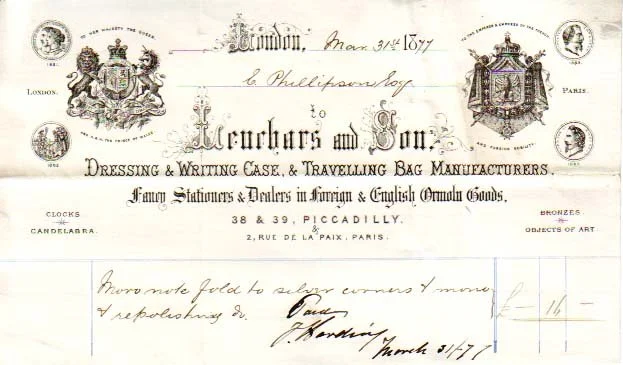 TO HER MAJESTY THE QUEEN.
AND H.R.H. THE PRINCE OF WALES
1862
LONDON.
London, Mar 31st 1877
C Phillipson Esq
TO THE EMPEROR & EMPRESS OF THE FRENCH
AND FOREIGN NOBILITY.
PARIS.
to
Leuchars and Son,
DRESSING & WRITING CASE, & TRAVELLING BAG MANUFACTURERS.
Fancy Stationers & Dealers in Foreign & English Ormolu Goods,
CLOCKS
CANDELABRA.
38 & 39, PICCADILLY.
&
2, RUE DE LA PAIX, PARIS.
BRONZES
OBJECTS OF ART
note fold to silver corners & mono
& repolishing &c. Paid
£ — 16 —
J Harding
March 31/77